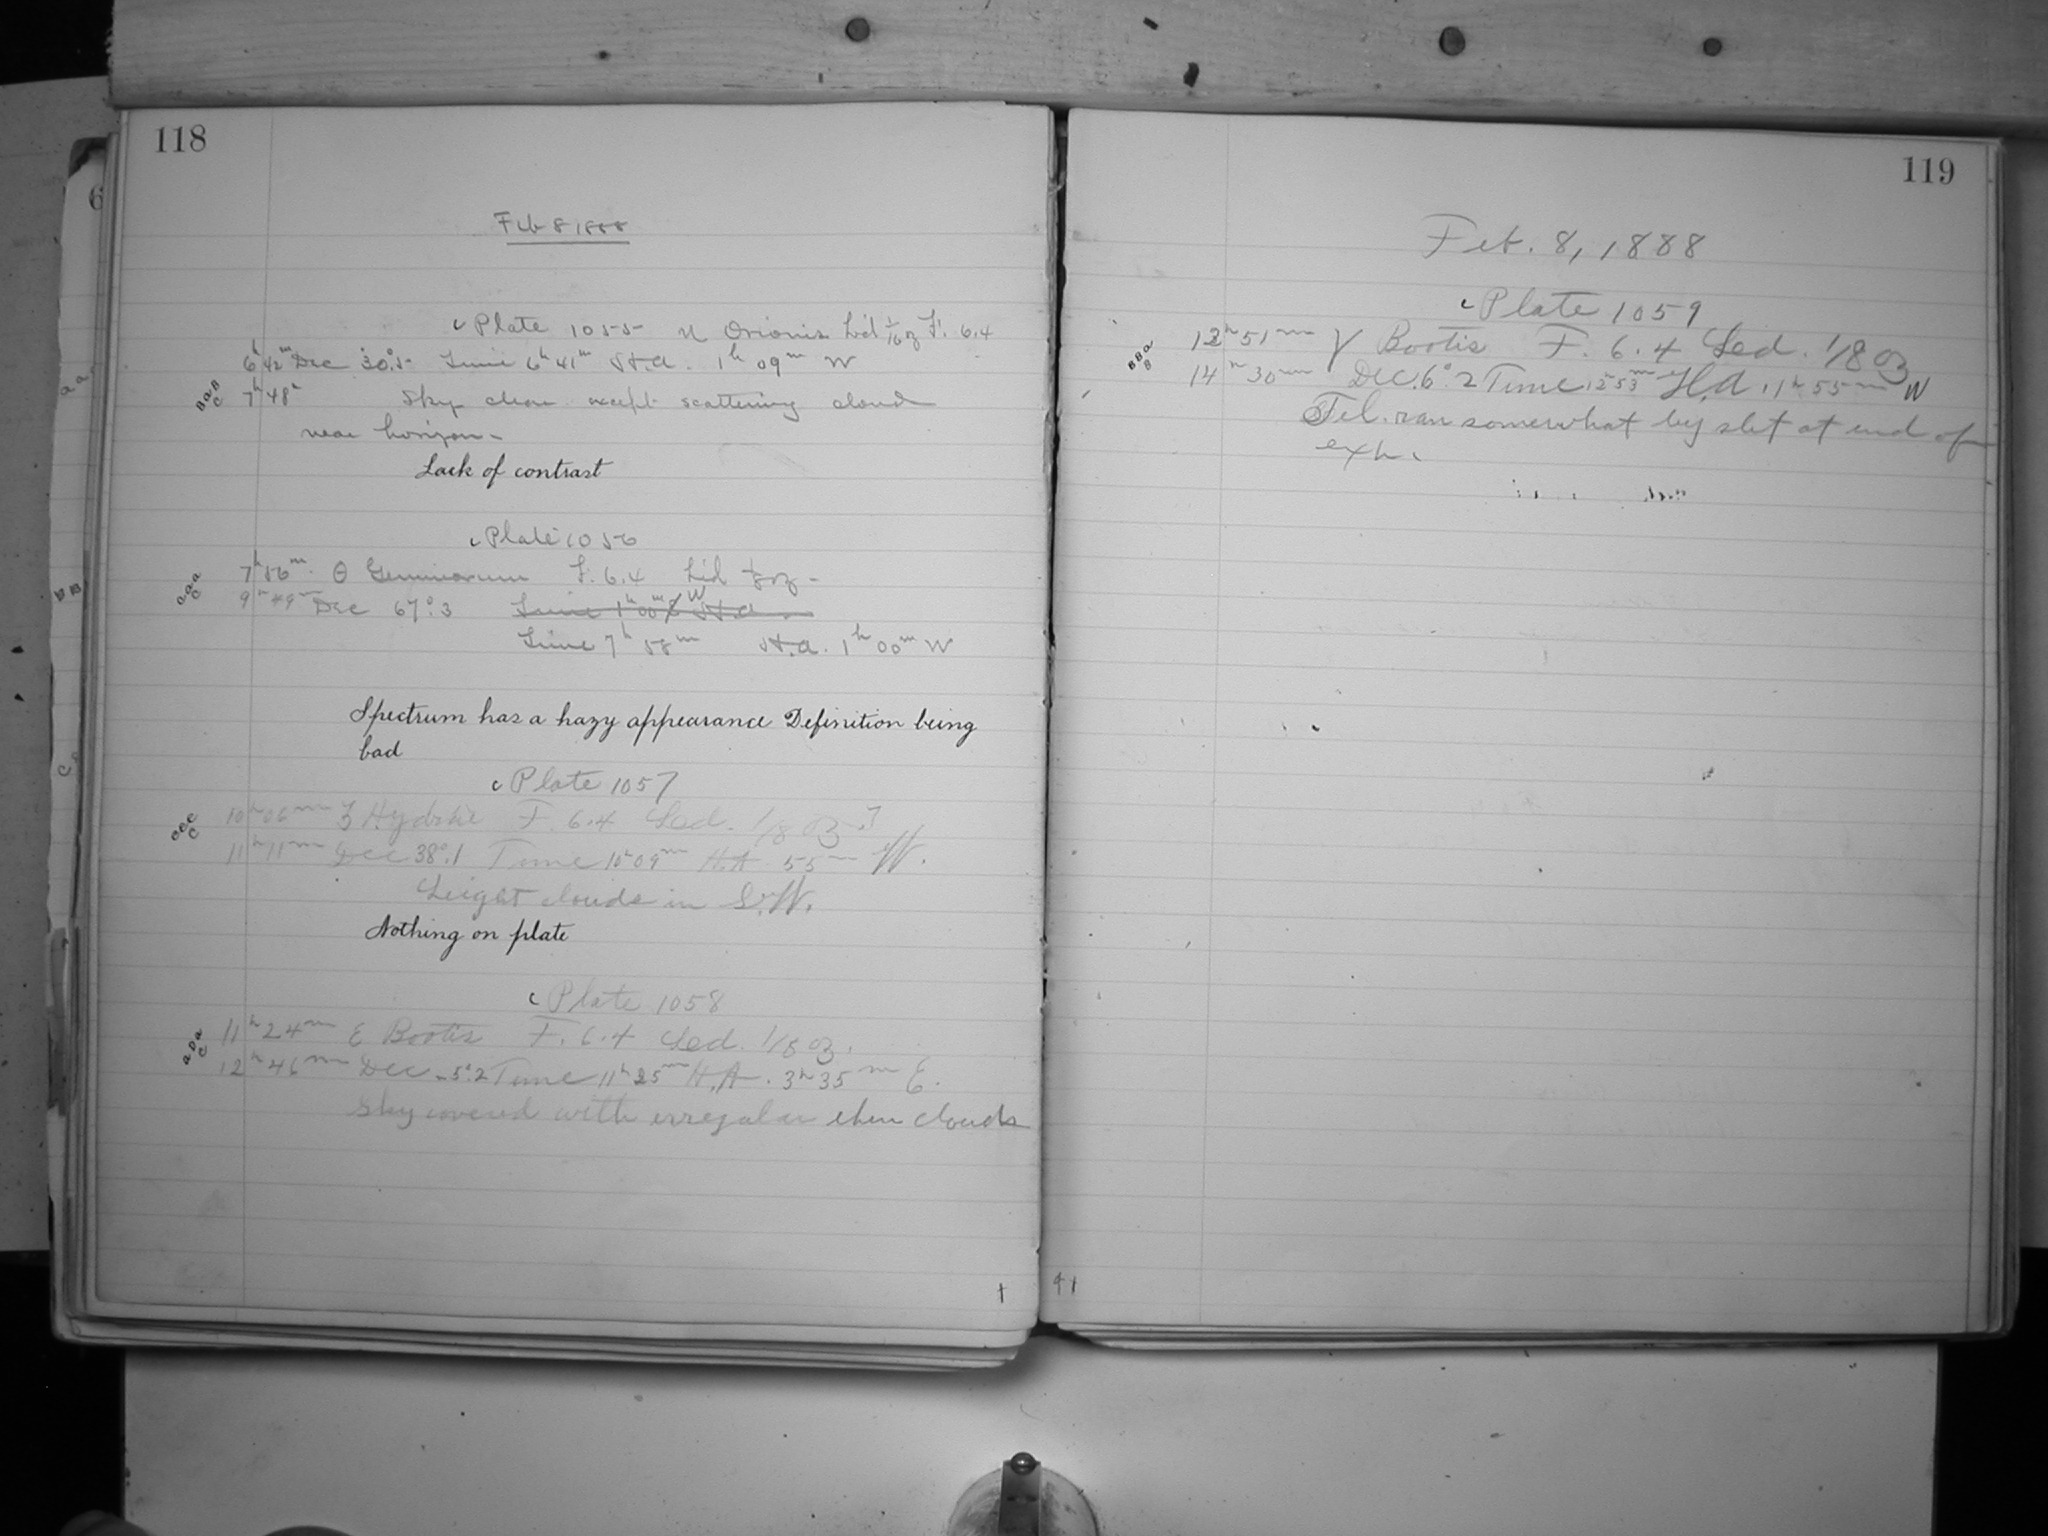 118
Feb 8 1888
c Plate 1055 η Orionis Led 1/16 oz F. 6.4
6h 42m Dec 30°.5 Time 6h 41m H.A. 1h 09m W
7h 48m Sky clear except scattering cloud
near horizon-
Lack of contrast
c Plate 1056
7h 56m θ Geminorum F. 6.4 Led 1/8 oz -
9h 49m Dec 67°.3 Time 1h 00m W H.A
Time 7h 58m H.A. 1h 00m W
Spectrum has a hazy appearance Definition being
bad
c Plate 1057
10h 06m ζ Hydrae F. 6.4 Led. 1/8 oz.?
11h 11m Dec 38°.1 Time 10h 09m H.A. 55m W.
Light clouds in S.W.
Nothing on plate
c Plate 1058
11h 24m ε Bootis F. 6.4 Led. 1/8 oz.
12h 46m Dec -5°.2 Time 11h 25m H.A. 3h 35m E.
Sky covered with irregular thin clouds
119
Feb. 8, 1888
c Plate 1059
12h 51m γ Bootis F. 6.4 Led. 1/8 oz
14h 30m Dec. 6°.2 Time 12h 53m H.A. 1h 55m W
Tel. ran somewhat by slit at end of
exp.